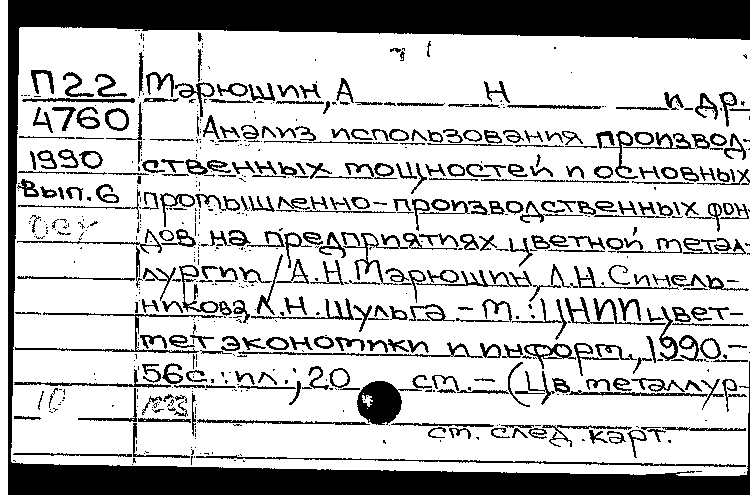 П22 Марюшин, А Н и др.
4760 Анализ использования производ-
1990 ственных мощностей и основных
Вып.6 промышленно-производственных фон
дов на предприятиях цветной метал-
лургии / А.Н. Марюшин, Л.Н. Синель-
никова, Л.Н. Шульга - М.: ЦНИИцвет-
мет экономики и информ., 1990.-
56с.: ил.; 20 см.- (Ц в. металлур-
10
ст. след. карт.